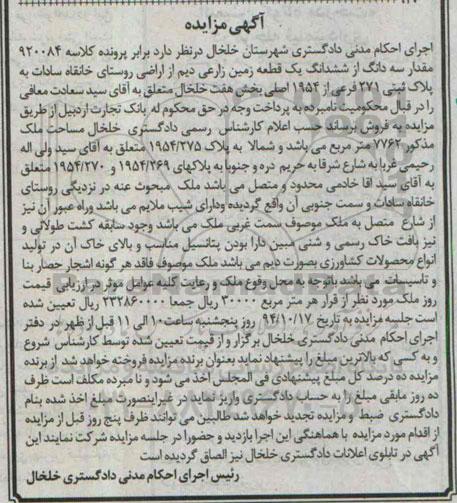 آگهی مزایده
اجرای احکام مدنی دادگستری شهرستان خلخال درنظر دارد برابر پرونده کلاسه ۹۲۰۰۸۴
مقدار سه دانگ از ششدانگ یک قطعه زمین زارعی دیم از اراضی روستای خانقاه سادات به
پلاک ثبتی ۲۷۱ فرعی از ۱۹۵۴ اصلی بخش هفت خلخال متعلق به آقای سید سعادت معافی
را در قبال محکومیت نامبرده به پرداخت وجه در حق محکوم له بانک تجارت اردبیل از طریق
مزایده به فروش برساند حسب اعلام کارشناس رسمی دادگستری خلخال مساحت ملک
مذکور ۷۷۶۲ متر مربع می باشد و شمالا به پلاک ۱۹۵۴/۲۷۵ متعلق به آقای سید ولی اله
رحیمی غربا به شارع شرقا به حریم دره و جنوبا به پلاکهای ۱۹۵۴/۲۶۹ و ۱۹۵۴/۲۷۰ متعلق
به آقای سید اقا خادمی محدود و متصل می باشد ملک مبحوث عنه در نزدیگی روستای
خانقاه سادات و سمت جنوبی آن واقع گردیده ودارای شیب ملایم می باشد وراه عبور آن نیز
از شارع متصل به ملک موصوف سمت غربی ملک می باشد وجود سابقه کشت طولانی و
نیز بافت خاک رسمی و شنی مبین دارا بودن پتانسیل مناسب و بالای خاک آن در تولید
انواع محصولات کشاورزی بصورت دیم می باشد ملک موصوف فاقد هر گونه اشجار حصار بنا
و تاسیسات می باشد باتوجه به محل وقوع ملک و رعایت کلیه عوامل موثر در ارزیابی قیمت
روز ملک مورد نظر از قرار هر متر مربع ۳۰۰۰۰ ریال جمعا ۲۳۲۸۶۰۰۰۰ ریال تعیین شده
است جلسه مزایده به تاریخ ۹۴/۱۰/۱۷ روز پنجشنبه ساعت۱۰ الی ۱۱ قبل از ظهر در دفتر
اجرای احکام مدنی دادگستری خلخال بر گزار و از قیمت تعیین شده توسط کارشناس شروع
و به کسی که بالاترین مبلغ را پیشنهاد نماید بعنوان برنده مزایده فروخته خواهد شد از برنده
مزایده ده درصد کل مبلغ پیشنهادی فی المجلس اخذ می شود و نامبرده مکلف است ظرف
ده روز مابقی مبلغ را به حساب دادگستری واریز نماید در غیراینصورت مبلغ اخذ شده بنام
دادگستری ضبط و مزایده تجدید خواهد شد طالبین می توانند ظرف پنج روز قبل از مزایده
از اقدام مورد مزایده با هماهنگی این اجرا بازدید و حضورا در جلسه مزایده شرکت نمایند این
آگهی در تابلوی اعلانات دادگستری خلخال نیز الصاق گردیده است
رئیس اجرای احکام مدنی دادگستری خلخال